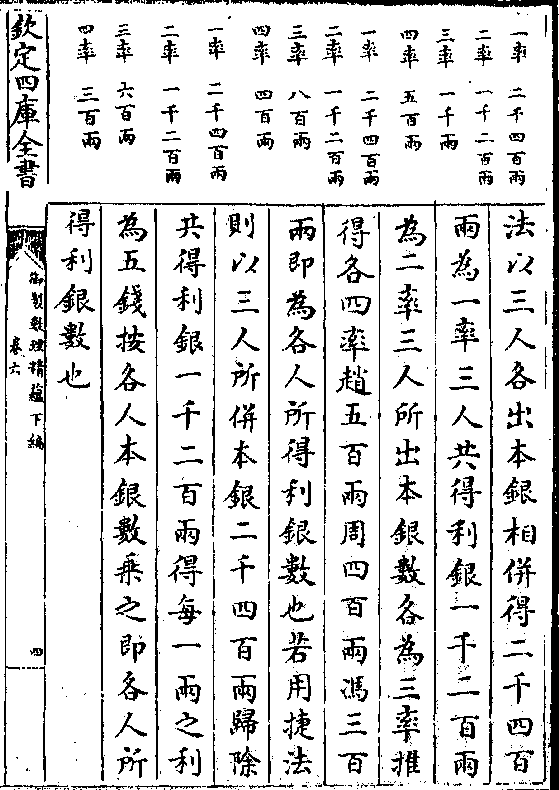 一率　二千四百兩
二率　一千二百兩
三率　一千兩
四率　五百兩
一率　二千四百兩
二率　一千二百兩
三率　八百兩
四率　四百兩
一率　二千四百兩
二率　一千二百兩
三率　六百兩
四率　三百兩
法以三人各出本銀相併得二千四百
兩為一率三人共得利銀一千二百兩
為二率三人所出本銀數各為三率推
得各四率趙五百兩周四百兩馮三百
兩即為各人所得利銀數也若用捷法
則以三人所併本銀二千四百兩歸除
共得利銀一千二百兩得每一兩之利
為五錢按各人本銀數乗之即各人所
得利銀數也
欽定四庫全書
御製數理精蘊下編
卷六
四